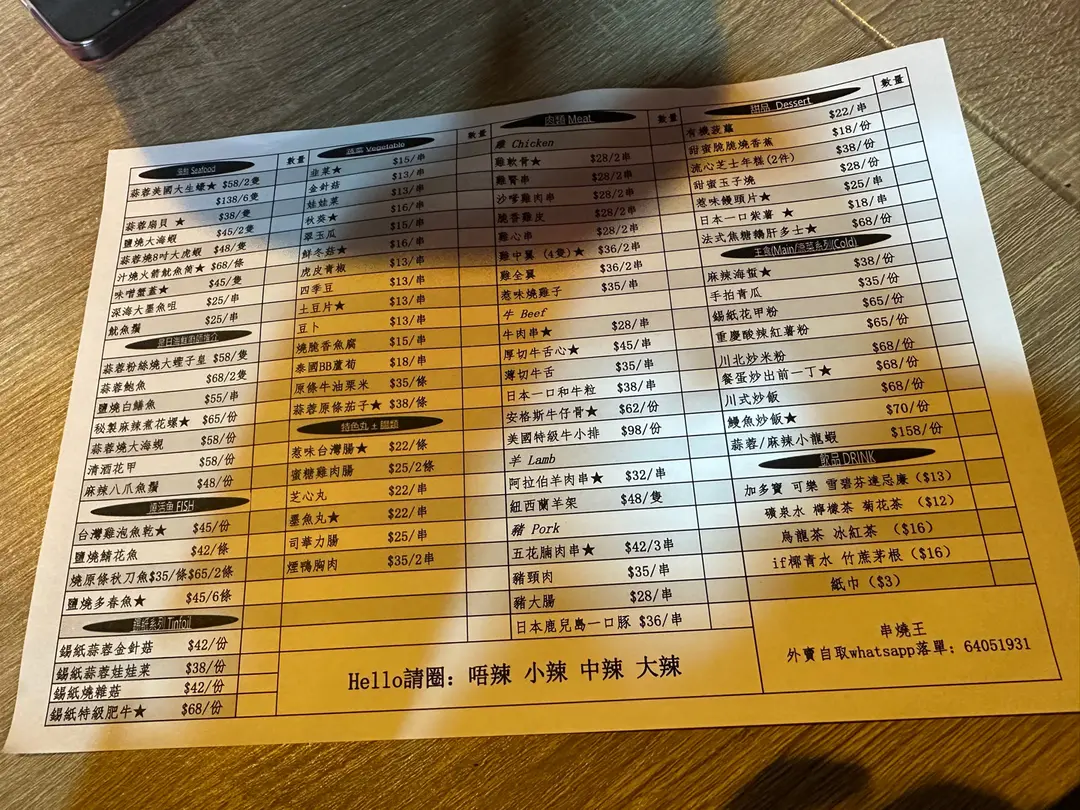 海鮮 Seafood
數量
蒜蓉美國大生蠔★ $58/2隻
$138/6隻
蒜蓉扇貝 ★ $38/隻
鹽燒大海蝦 $45/2隻
蒜蓉燒8吋大虎蝦 $48/隻
汁燒火箭魷魚筒★ $68/條
味噌蟹蓋★ $45/隻
深海大墨魚咀 $25/串
魷魚鬚 $25/串
蒜蓉粉絲燒大蟶子皇 $58/隻
蒜蓉鮑魚 $68/2隻
鹽燒白鱔魚 $55/串
秘製麻辣煮花螺★ $65/份
蒜蓉燒大海蜆 $58/份
清酒花甲 $58/份
麻辣八爪魚鬚 $48/份
燒活魚 FISH
台灣雞泡魚乾★ $45/份
鹽燒鯖花魚 $42/條
燒原條秋刀魚$35/條$65/2條
鹽燒多春魚★ $45/6條
錫紙系列 Tinfoil
錫紙蒜蓉金針菇 $42/份
錫紙蒜蓉娃娃菜 $38/份
錫紙燒雜菇 $42/份
錫紙特級肥牛★ $68/份
蔬菜 Vegetable
數量
韭菜★ $15/串
金針菇 $13/串
娃娃菜 $13/串
秋葵★ $16/串
翠玉瓜 $15/串
鮮冬菇★ $16/串
虎皮青椒 $13/串
四季豆 $13/串
土豆片★ $13/串
豆卜 $13/串
燒脆香魚腐 $15/串
泰國BB蘆荀 $18/串
原條牛油粟米 $35/條
蒜蓉原條茄子★ $38/條
特色丸±腸類
惹味台灣腸★ $22/條
蜜糖雞肉腸 $25/2條
芝心丸 $22/串
墨魚丸★ $22/串
司華力腸 $25/串
煙鴨胸肉 $35/2串
肉類 Meat
數量
雞 Chicken
雞軟骨★ $28/2串
雞腎串 $28/2串
沙爹雞肉串 $28/2串
脆香雞皮 $28/2串
雞心串 $28/2串
雞中翼 (4隻)★ $36/2串
雞全翼 $36/2串
惹味燒雞子 $35/串
牛 Beef
牛肉串★ $28/串
厚切牛舌心★ $45/串
薄切牛舌 $35/串
日本一口和牛粒 $38/串
安格斯牛仔骨★ $62/份
美國特級牛小排 $98/份
羊 Lamb
阿拉伯羊肉串★ $32/串
紐西蘭羊架 $48/隻
豬 Pork
五花腩肉串★ $42/3串
豬頸肉 $35/串
豬大腸 $28/串
日本鹿兒島一口豚 $36/串
甜品 Dessert
數量
有機菠蘿 $22/串
甜蜜脆脆燒香蕉 $18/份
流心芝士年糕(2件) $38/份
甜蜜玉子燒 $28/份
惹味饅頭片★ $25/串
日本一口紫薯 ★ $18/串
法式焦糖鵝肝多士★ $68/份
主食(Main/涼菜系列(Cold)
麻辣海蜇★ $38/份
手拍青瓜 $35/份
錫紙花甲粉 $65/份
重慶酸辣紅薯粉 $65/份
川北炒米粉 $68/份
餐蛋炒出前一丁★ $68/份
川式炒飯 $68/份
鰻魚炒飯★ $70/份
蒜蓉/麻辣小龍蝦 $158/份
飲品 DRINK
加多寶 可樂 雪碧芬達忌廉($13)
礦泉水 檸檬茶 菊花茶 ($12)
烏龍茶 冰紅茶 ($16)
if椰青水 竹蔗茅根 ($16)
紙巾 ($3)
Hello請圈：唔辣 小辣 中辣 大辣
串燒王
外賣自取whatsapp落單：64051931